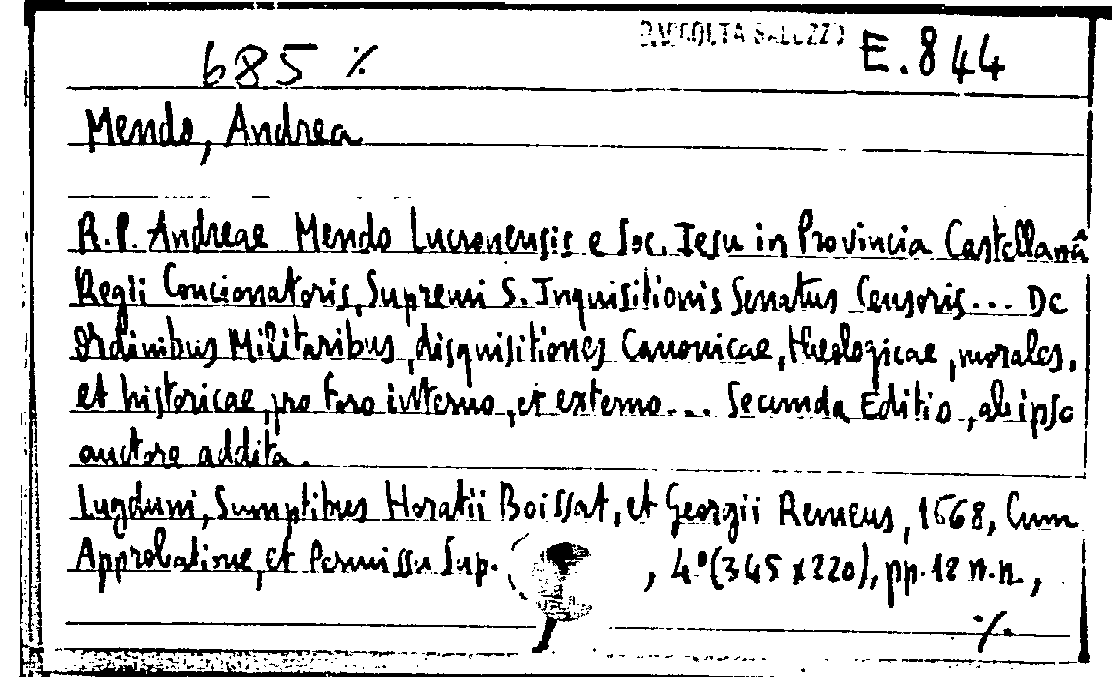 RACCOLTA SALUZZO
685 ./. E.844
Mendo, Andrea
R.P. Andreae Mendo Lucronensis e Soc. Iesu in Provincia Castellanâ
Regii Concionatoris, Supremi S. Inquisitionis Senatus Censoris... De
Ordinibus Militaribus, disquisitiones Canonicae, theologicae, morales,
et historicae, pro foro interno, et externo... Secunda Editio, ab ipso
auctore addita.
Lugduni, Sumptibus Horatii Boissat, et Georgii Remeus, 1668, Cum
Approbatione, et Permissu Sup. , 4°(345x220), pp. 12 n.n.,
./.